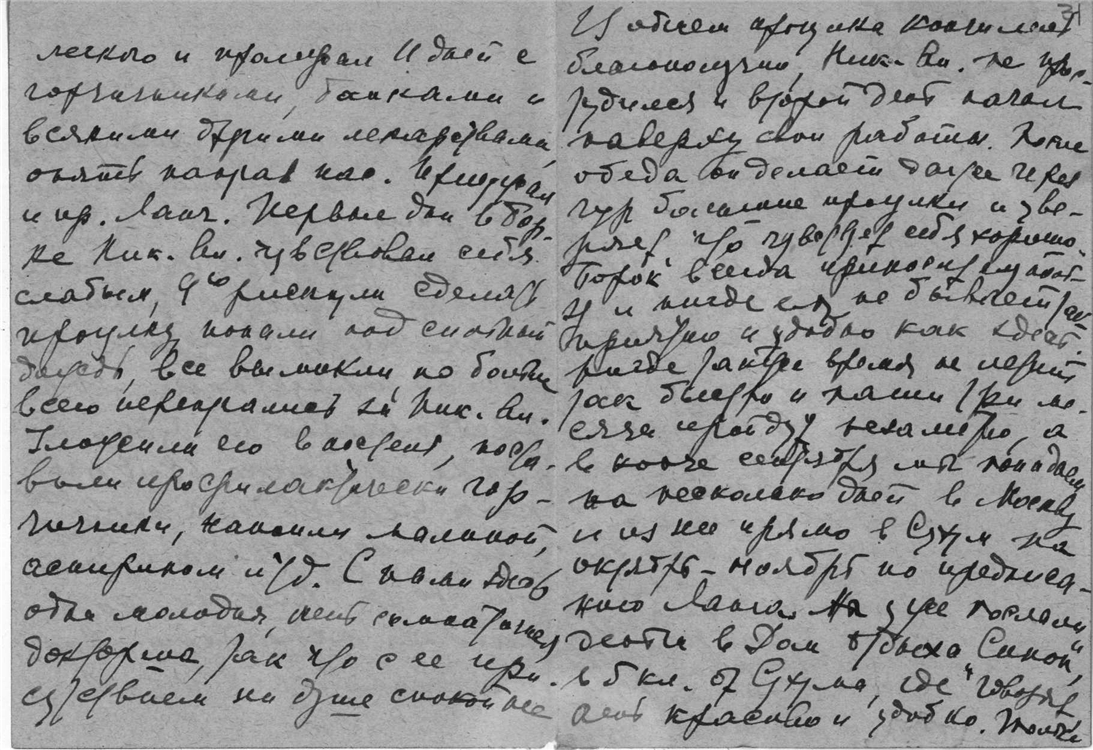 легкого и пролежал 11 дней с
горчичниками, банками и
всякими другими лекарствами,
опять напугав нас.
и пр. Ланг. Первые дни в Бор-
ке Ник. Вл. чувствовал себя
слабым, 9го рискнули сделать
прогулку, попали под сильный
дождь, все вымокли, но больше
всего перепугались за Ник. Вл.
Уложили его в постель, поста-
вили профилактически гор-
чичники, напоили малиной,
аспирином и т.д. С нами здесь
одна молодая, очень симпатичная
докторша, так что с ее при-
сутствием на душе спокойнее
31
В общем прогулка кончилась
благополучно, Ник. Вл. не прос-
тудился и второй день начал
наверху свои работы. После
обеда он делает даже через
большие прогулки и уве-
ряет что чувствует себя хорошо.
"Борок" всегда приносит ему
и нигде ему не бывает так
приятно и удобно как здесь.
Нигде также время не летит
так быстро и наши три ме-
сяца пройдут незаметно, а
в конце сентября мы попадаем
на несколько дней в Москву
и из нее прямо в Сухум на
октябрь - ноябрь по предписа-
нию Ланга. Мы уже послали
деньги в Дом отдыха "Синоп",
в 6 кл. от Сухума, где говорят
очень красиво и удобно. Только